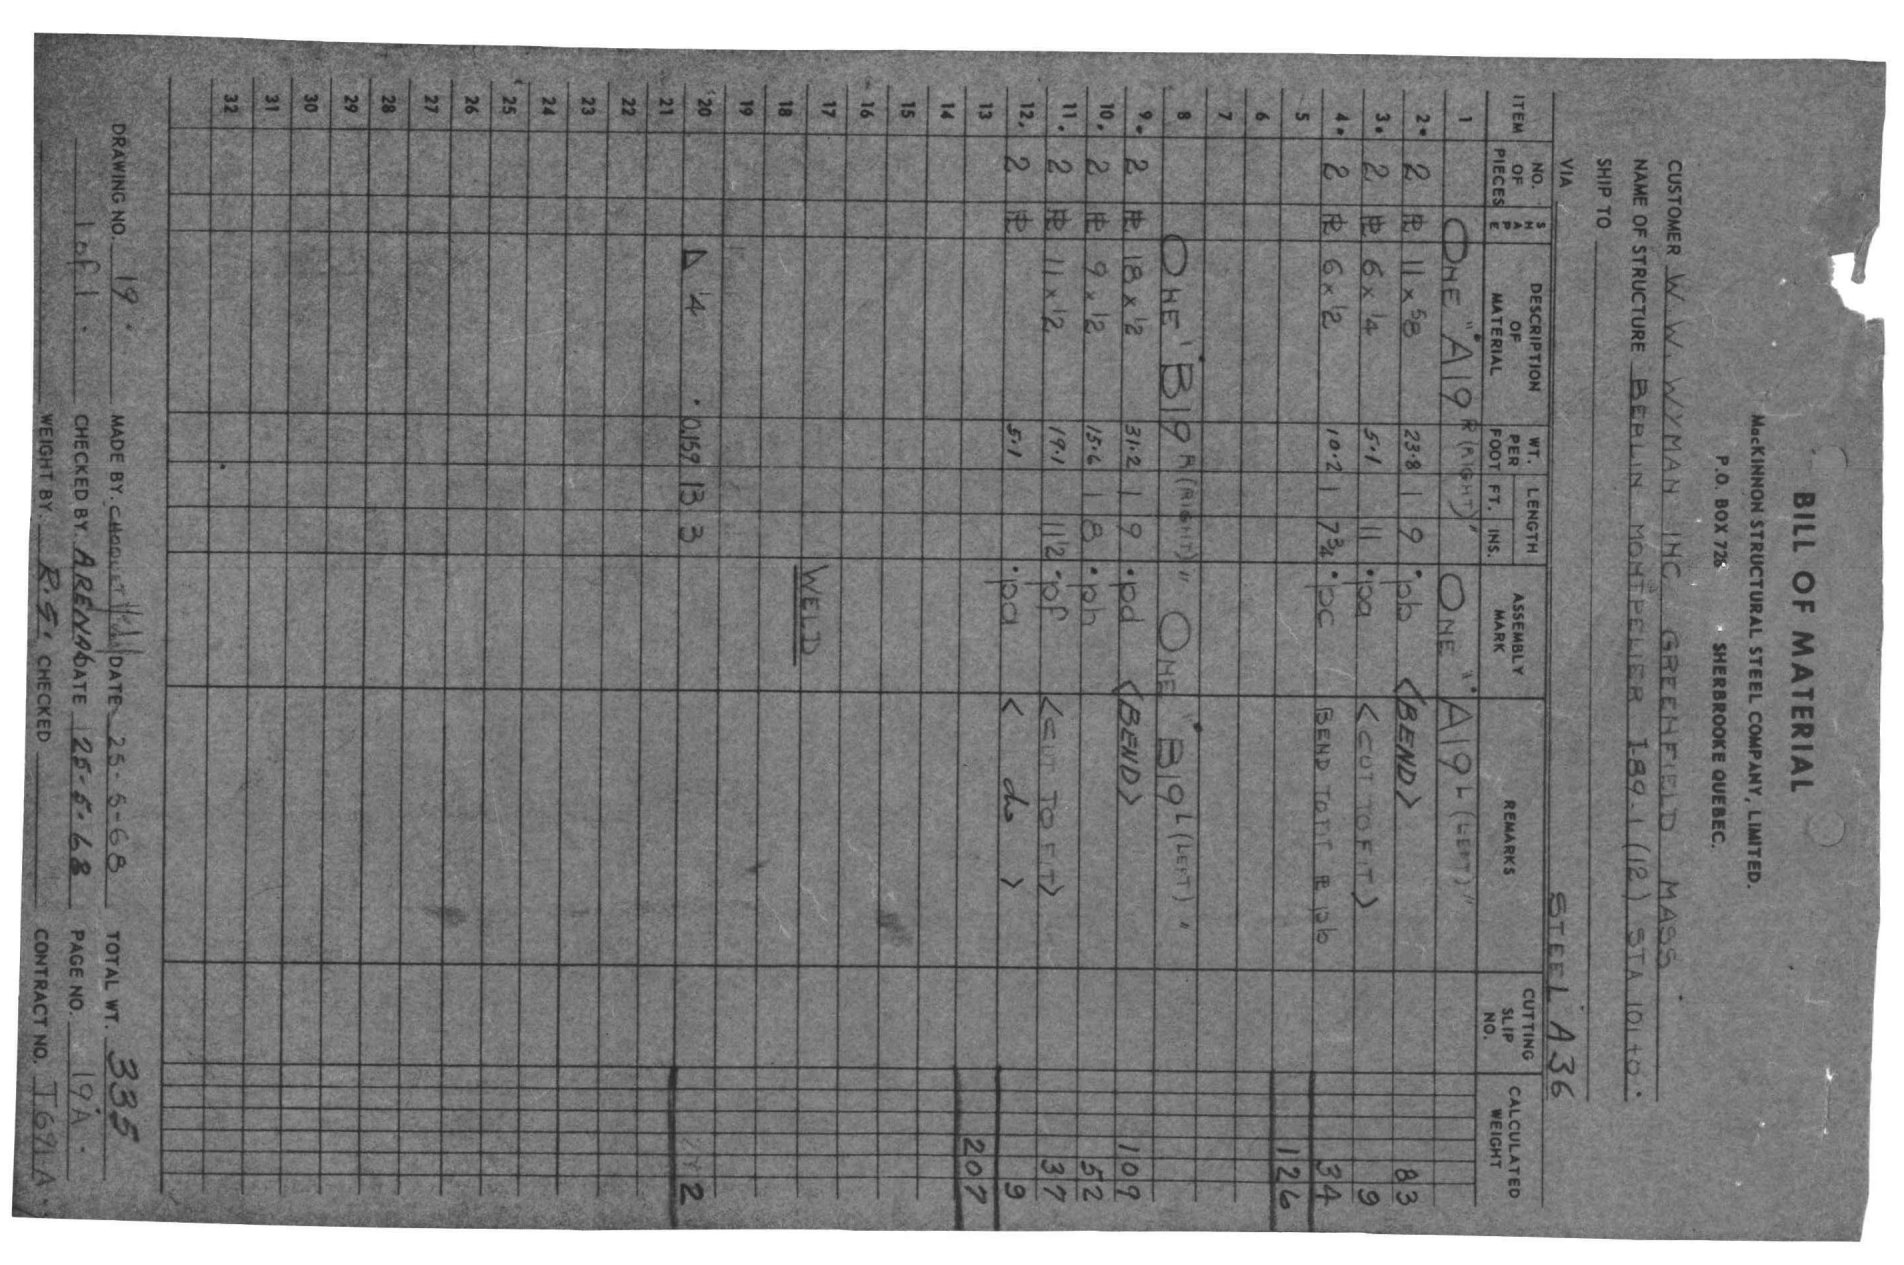 BILL OF MATERIAL
MacKINNON STRUCTURAL STEEL COMPANY, LIMITED.
P.O. BOX 725 SHERBROOKE QUEBEC.
CUSTOMER W. W. WYMAN INC. GREENFIELD MASS.
NAME OF STRUCTURE BERLIN MONTPELIER I-89-1 (12) STA 101+0.
SHIP TO
VIA STEEL A36
ITEM NO. OF PIECES SHAPE DESCRIPTION OF MATERIAL WT. PER FOOT LENGTH FT. INS. ASSEMBLY MARK REMARKS CUTTING SLIP NO. CALCULATED WEIGHT
1 ONE "A19 R (RIGHT)" ONE "A19 L (LEFT)"
2. 2 PL 11 x 5/8 23.8 1 9 pb <BEND> 83
3. 2 PL 6 x 1/4 5.1 11 pa <CUT TO FIT> 9
4. 2 PL 6 x 1/2 10.2 1 7 3/4 pc BEND TO FIT PL pb 34
5 126
6
7
8 ONE "B19 R (RIGHT)" ONE "B19 L (LEFT)"
9. 2 PL 18 x 1/2 31.2 1 9 pd <BEND> 109
10. 2 PL 9 x 1/2 15.6 1 8 ph 52
11. 2 PL 11 x 1/2 19.1 11 1/2 pf <CUT TO FIT> 37
12. 2 PL 5.1 pa < do > 9
13 207
14
15
16
17
18 WELD
19
20 1/4 0.159 13 3 2
21
22
23
24
25
26
27
28
29
30
31
32
DRAWING NO. 19 MADE BY. CHOQUET DATE 25-5-68 TOTAL WT. 335
1 of 1 CHECKED BY. ARENA DATE 25-5-68 PAGE NO. 19A
WEIGHT BY. R.G. CHECKED CONTRACT NO. T691-A